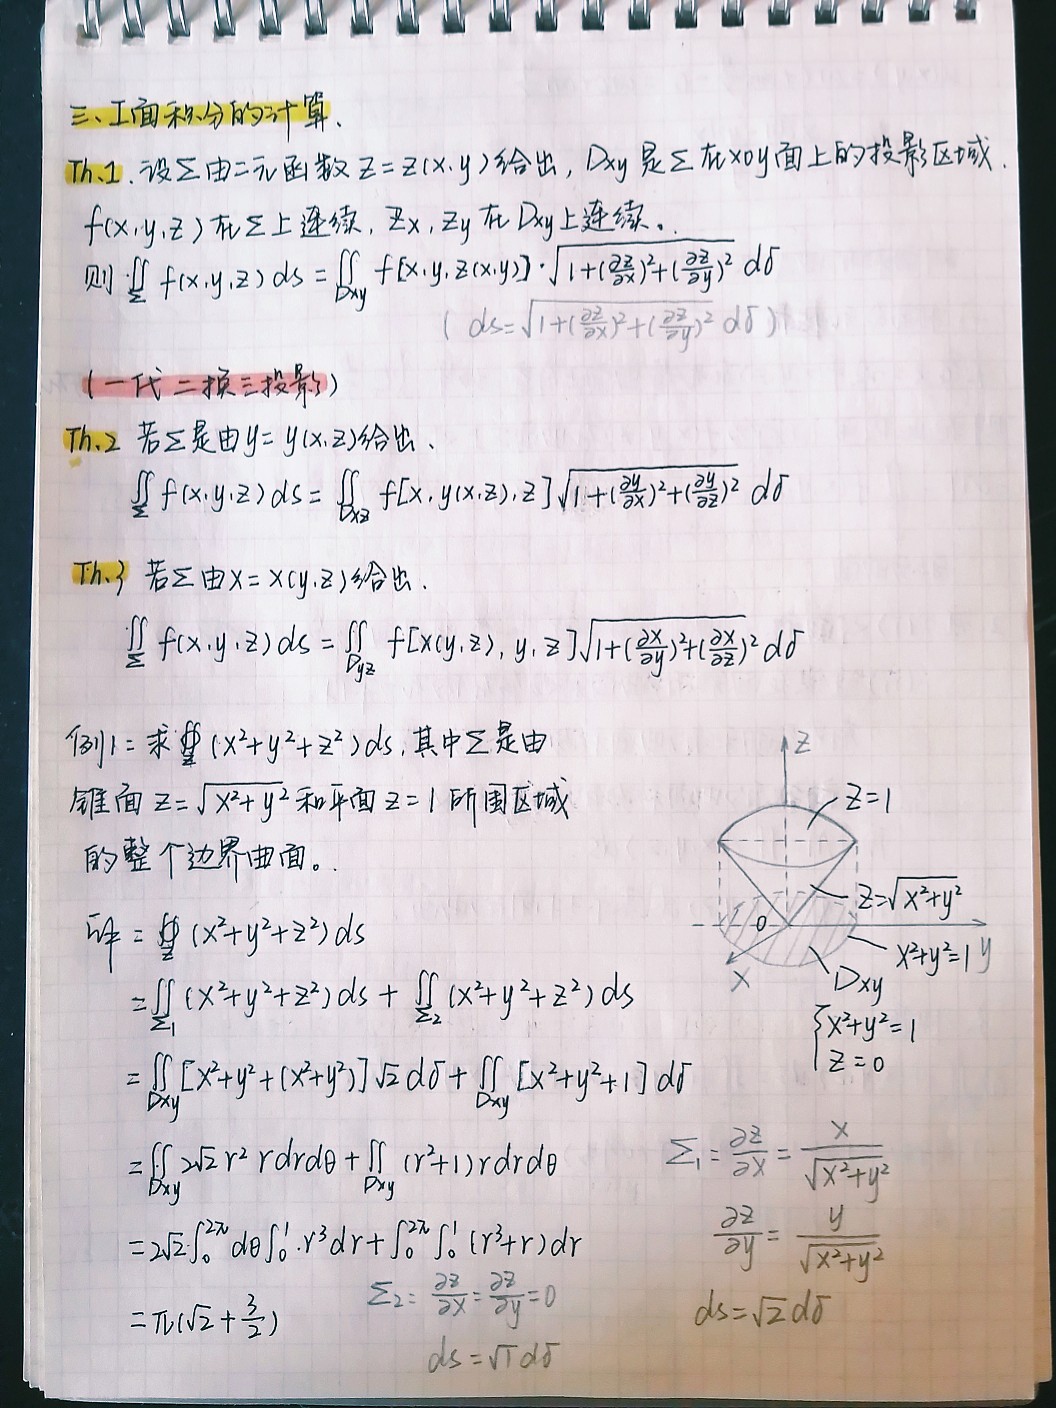 三、工面积分的计算.
Th.1. 设Σ由二元函数 z=z(x,y)给出, Dxy 是Σ在xoy面上的投影区域.
f(x,y,z)在Σ上连续, Zx, Zy 在Dxy上连续。
则 ∬Σ f(x,y,z) ds = ∬Dxy f[x,y,z(x,y)]·√(1+(∂z/∂x)²+(∂z/∂y)²) dδ
( ds=√(1+(∂z/∂x)²+(∂z/∂y)²) dδ )
(一代二换三投影)
Th.2 若Σ是由y=y(x,z)给出.
∬Σ f(x,y,z) ds = ∬Dxz f[x,y(x,z),z]√(1+(∂y/∂x)²+(∂y/∂z)²) dδ
Th.3 若Σ由x=x(y,z)给出.
∬Σ f(x,y,z) ds = ∬Dyz f[x(y,z),y,z]√(1+(∂x/∂y)²+(∂x/∂z)²) dδ
例1: 求∯Σ (x²+y²+z²)ds, 其中Σ是由
锥面 z=√(x²+y²) 和平面 z=1 所围区域
的整个边界曲面。
z
z=1
z=√(x²+y²)
0
x²+y²=1
y
x
Dxy
{x²+y²=1
z=0
解 = ∯Σ (x²+y²+z²) ds
= ∬Σ₁ (x²+y²+z²) ds + ∬Σ₂ (x²+y²+z²) ds
= ∬Dxy [x²+y²+(x²+y²)]√2 dδ + ∬Dxy [x²+y²+1] dδ
= ∬Dxy 2√2 r² r dr dθ + ∬Dxy (r²+1) r dr dθ
= 2√2·∫₀^2π dθ ∫₀^1·r³ dr + ∫₀^2π ∫₀^1 (r³+r) dr
= π(√2 + 3/2)
Σ₁= ∂z/∂x = x/√(x²+y²)
∂z/∂y = y/√(x²+y²)
ds=√2 dδ
Σ₂= ∂z/∂x = ∂z/∂y = 0
ds=√1 dδ